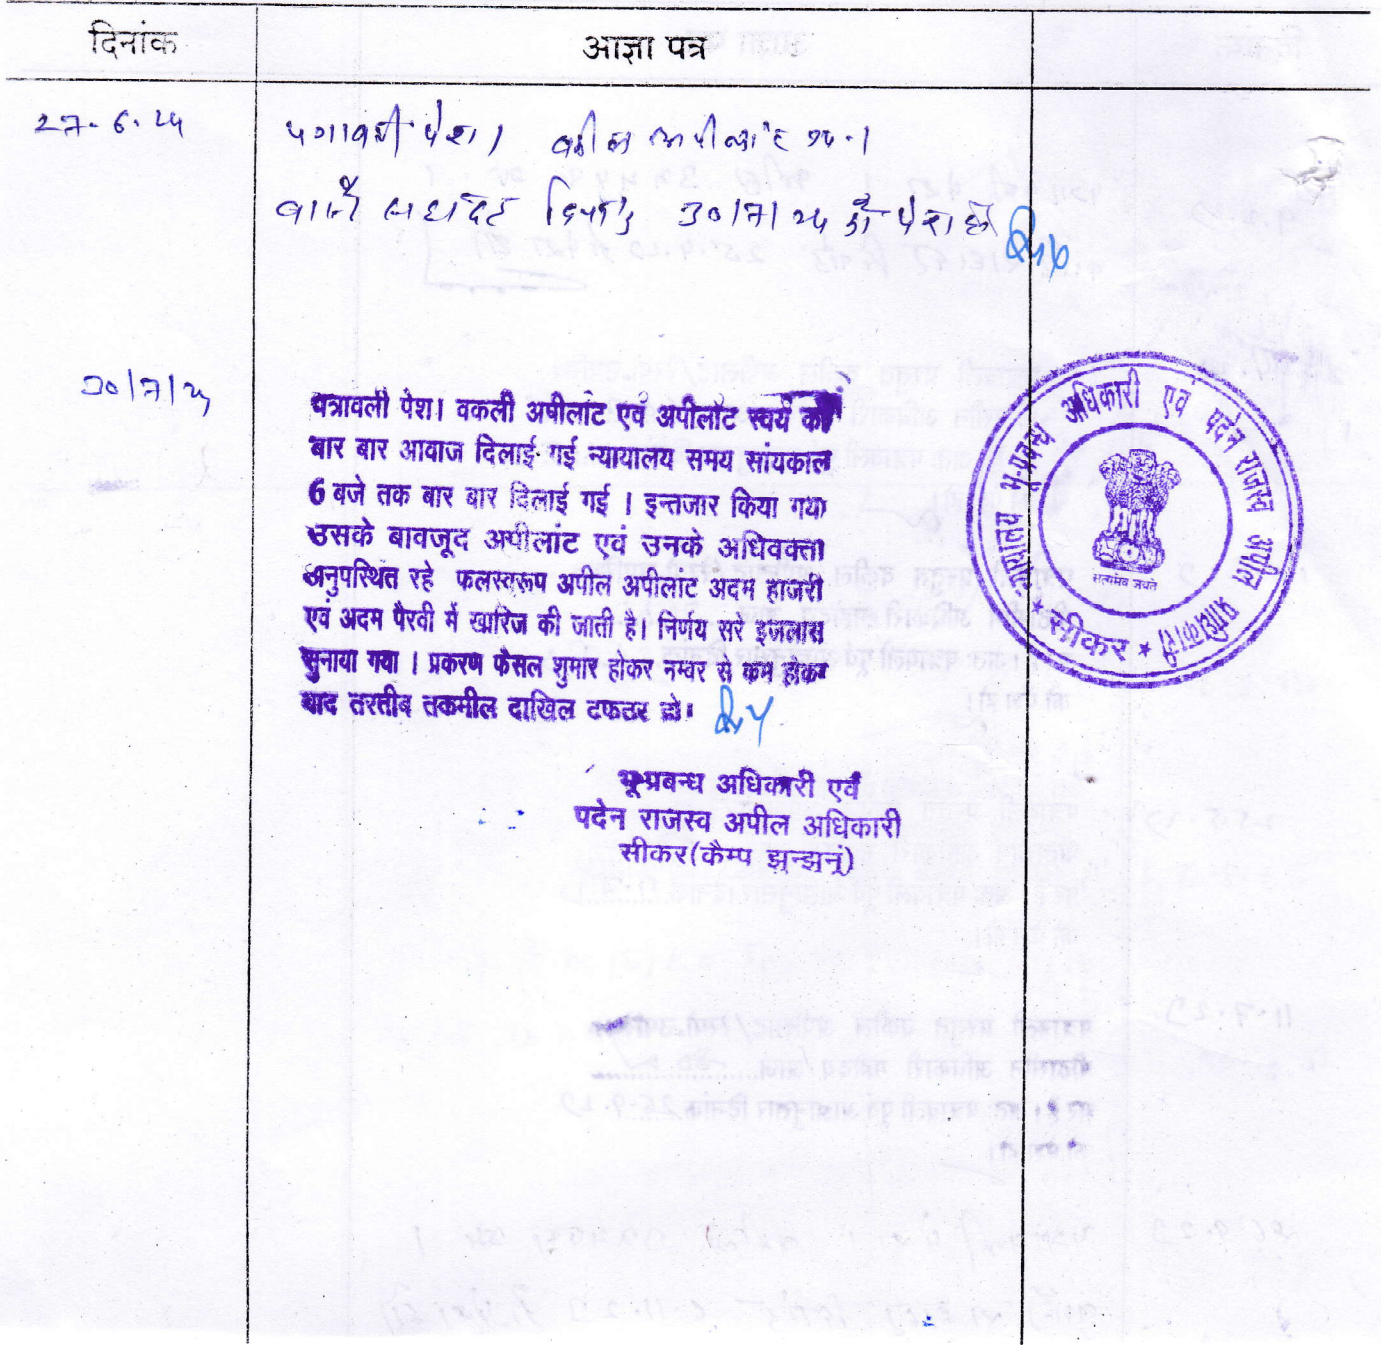 दिनांक
आज्ञा पत्र
27.6.24
पत्रावली पेश। वकील अपीलांट उप.।
वास्ते बहस दिनांक 30/7/24 को पेश हो
30/7/24
पत्रावली पेश। वकली अपीलांट एवं अपीलांट स्वयं को
बार बार आवाज दिलाई गई न्यायालय समय सांयकाल
6 बजे तक बार बार दिलाई गई । इन्तजार किया गया
उसके बावजूद अपीलांट एवं उनके अधिवक्ता
अनुपस्थित रहे फलस्वरूप अपील अपीलांट अदम हाजरी
एवं अदम पैरवी में खारिज की जाती है। निर्णय सरे इजलास
सुनाया गया । प्रकरण फैसल शुमार होकर नम्बर से कम होकर
बाद तरतीब तकमील दाखिल दफ्तर हो।
भू-प्रबन्ध अधिकारी एवं
पदेन राजस्व अपील अधिकारी
सीकर(कैम्प झुन्झुनूं)
न्यायालय भू-प्रबन्ध अधिकारी एवं पदेन राजस्व अपील प्राधिकारी
★ सीकर ★
सत्यमेव जयते